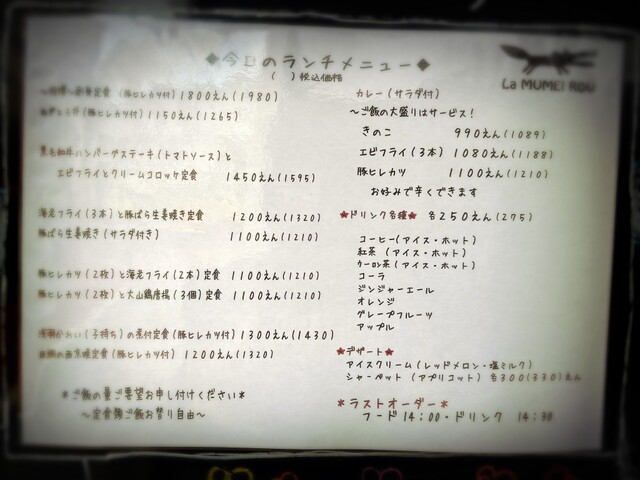 ◆今日のランチメニュー◆
( ) 税込価格
La MUMEI ROU
定食 (豚ヒレカツ付) 1800えん(1980)
(豚ヒレカツ付) 1150えん(1265)
黒毛和牛ハンバーグステーキ(トマトソース)と
エビフライとクリームコロッケ定食 1450えん(1595)
海老フライ(3本)と豚ばら生姜焼き定食 1200えん(1320)
豚ばら生姜焼き(サラダ付き) 1100えん(1210)
豚ヒレカツ(2枚)と海老フライ(2本)定食 1100えん(1210)
豚ヒレカツ(2枚)と大山鶏唐揚(3個)定食 1100えん(1210)
(子持ち)の煮付定食(豚ヒレカツ付) 1300えん(1430)
の西京焼定食(豚ヒレカツ付) 1200えん(1320)
*ご飯の量ご要望お申し付けください*
~定食類ご飯お替り自由~
カレー(サラダ付)
~ご飯の大盛りはサービス!
きのこ 990えん(1089)
エビフライ(3本) 1080えん(1188)
豚ヒレカツ 1100えん(1210)
お好みで辛くできます
★ドリンク各種★ 各250えん(275)
コーヒー(アイス・ホット)
紅茶 (アイス・ホット)
ウーロン茶(アイス・ホット)
コーラ
ジンジャーエール
オレンジ
グレープフルーツ
アップル
★デザート★
アイスクリーム(レッドメロン・塩ミルク)
シャーベット(アプリコット) 各300(330)えん
*ラストオーダー*
フード 14:00・ドリンク 14:30